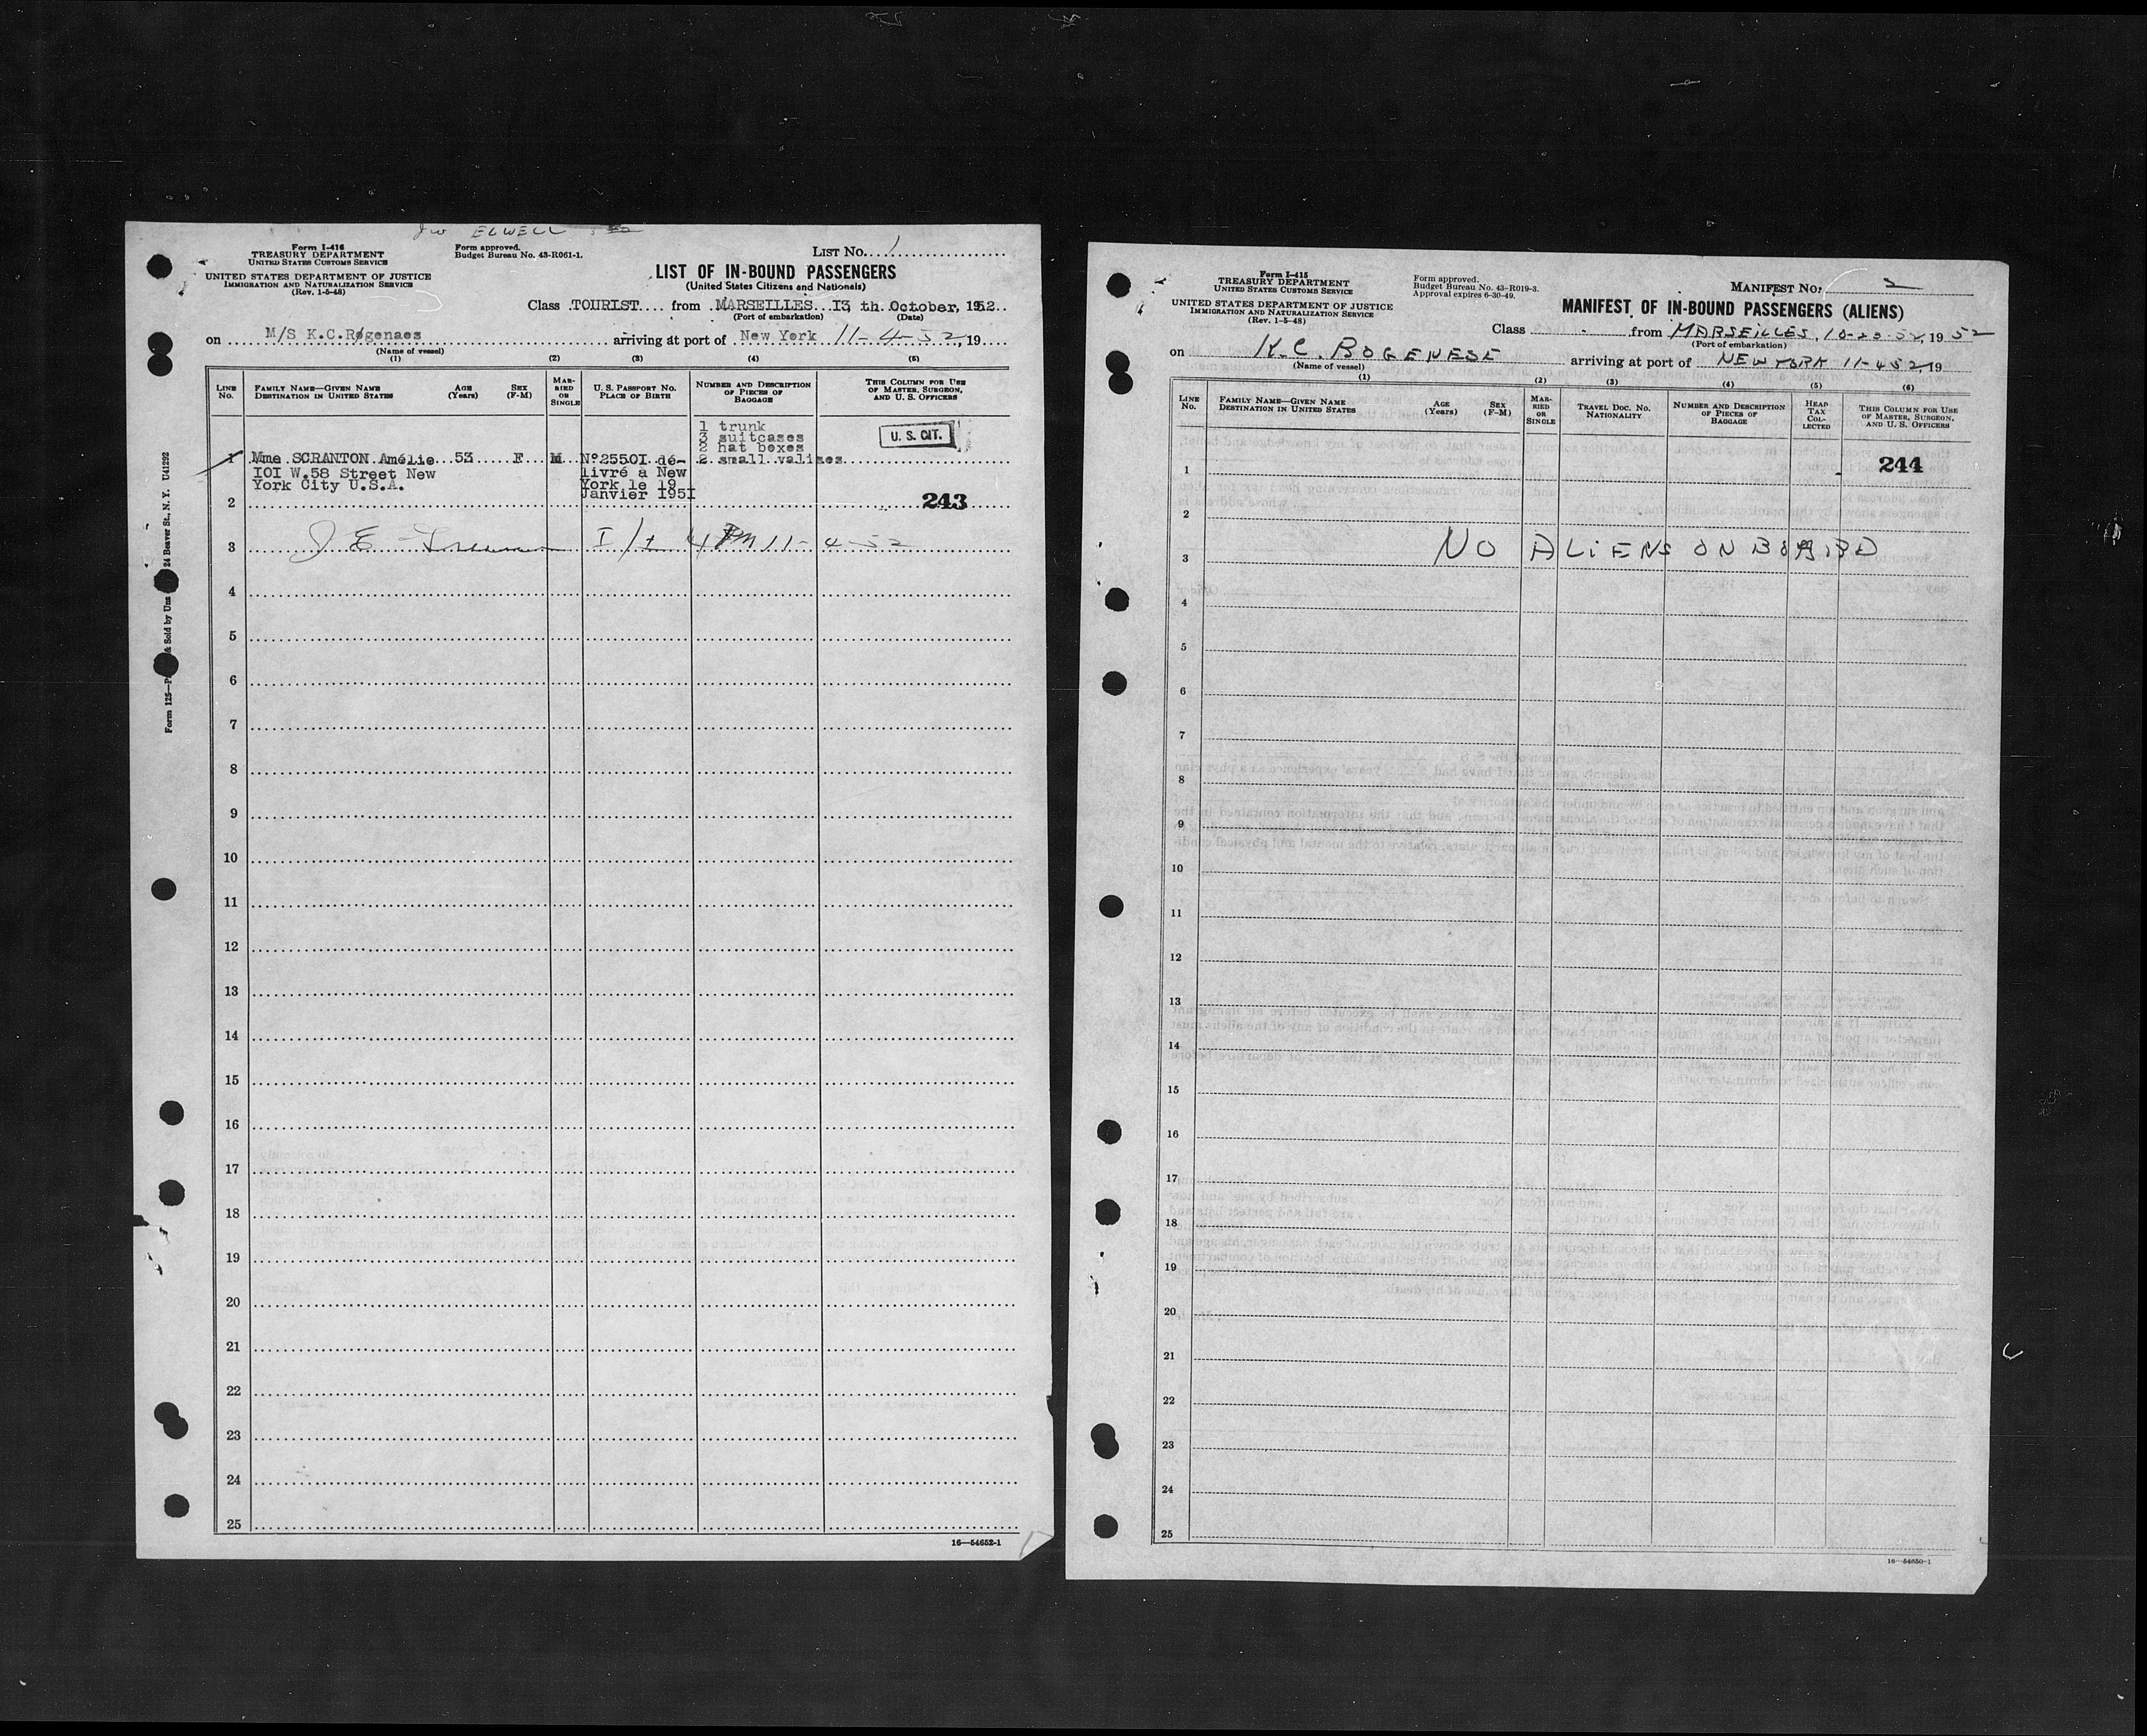 JW ELWELL
Form I-416
TREASURY DEPARTMENT
UNITED STATES CUSTOMS SERVICE
UNITED STATES DEPARTMENT OF JUSTICE
IMMIGRATION AND NATURALIZATION SERVICE
(Rev. 1-5-48)
Form approved.
Budget Bureau No. 43-R061-1.
LIST No. 1
LIST OF IN-BOUND PASSENGERS
(United States Citizens and Nationals)
Class TOURIST from MARSEILLES I3 th October, 1952
(Port of embarkation) (Date)
on M/S K.C.Røgenaes arriving at port of New York 11-4-52, 19
(Name of vessel)
(1) (2) (3) (4) (5)
LINE No. FAMILY NAME—GIVEN NAME DESTINATION IN UNITED STATES AGE (Years) SEX (F-M) MARRIED OR SINGLE U. S. PASSPORT NO. PLACE OF BIRTH NUMBER AND DESCRIPTION OF PIECES OF BAGGAGE THIS COLUMN FOR USE OF MASTER, SURGEON, AND U. S. OFFICERS
1 trunk
3 suitcases
2 hat boxes
U. S. CIT.
1 Mme SCRANTON Amélie 53 F M N°2550I dé- 2 small valises
IOI W.58 Street New livré à New
York City U.S.A. York le 19
2 Janvier I95I 243
3 I/I 4 PM 11-4-52
4
5
6
7
8
9
10
11
12
13
14
15
16
17
18
19
20
21
22
23
24
25
16—54652-1
24 Beaver St., N. Y. U41292
Form I-415
TREASURY DEPARTMENT
UNITED STATES CUSTOMS SERVICE
UNITED STATES DEPARTMENT OF JUSTICE
IMMIGRATION AND NATURALIZATION SERVICE
(Rev. 1-5-48)
Form approved.
Budget Bureau No. 43-R019-3.
Approval expires 6-30-49.
MANIFEST No. 2
MANIFEST OF IN-BOUND PASSENGERS (ALIENS)
Class from MARSEILLES, 19 52
(Port of embarkation)
on K.C. BOGENESE arriving at port of NEW YORK 11-4-52, 19
(Name of vessel)
(1) (2) (3) (4) (5) (6)
LINE No. FAMILY NAME—GIVEN NAME DESTINATION IN UNITED STATES AGE (Years) SEX (F-M) MARRIED OR SINGLE TRAVEL DOC. NO. NATIONALITY NUMBER AND DESCRIPTION OF PIECES OF BAGGAGE HEAD TAX COLLECTED THIS COLUMN FOR USE OF MASTER, SURGEON, AND U. S. OFFICERS
1 244
2
3 NO ALIENS ON BOARD
4
5
6
7
8
9
10
11
12
13
14
15
16
17
18
19
20
21
22
23
24
25
16—54650-1